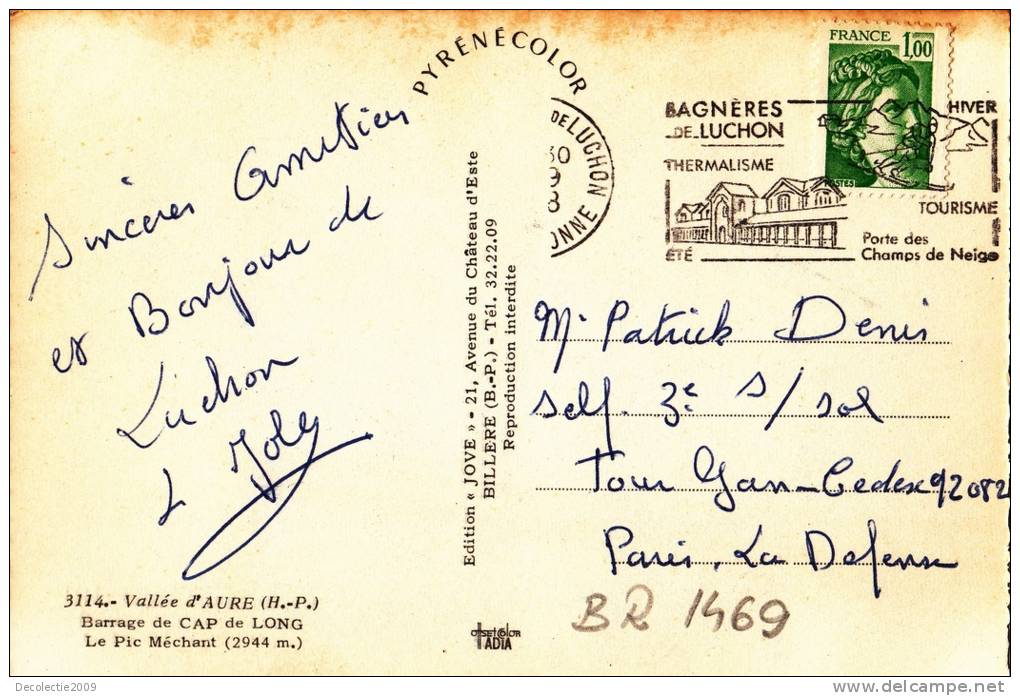 PYRÉNÉCOLOR
FRANCE 1,00
POSTES
DE LUCHON
30
9
8
ONNE
BAGNÈRES
DE-LUCHON
THERMALISME
ÉTÉ
HIVER
TOURISME
Porte des
Champs de Neige
Sincères Amitiés
et Bonjour de
Luchon
L Joly
Edition « JOVE » - 21, Avenue du Château d'Este
BILLERE (B.-P.) - Tél. 32.22.09
Reproduction interdite
Mr Patrick Denis
Self. 3e s/sol
Tour Gan-Cedex 92082
Paris. La Defense
BR 1469
3114.- Vallée d'AURE (H.-P.)
Barrage de CAP de LONG
Le Pic Méchant (2944 m.)
OFFSETCOLOR
IADIA
Decolectie2009
www.delcampe.net